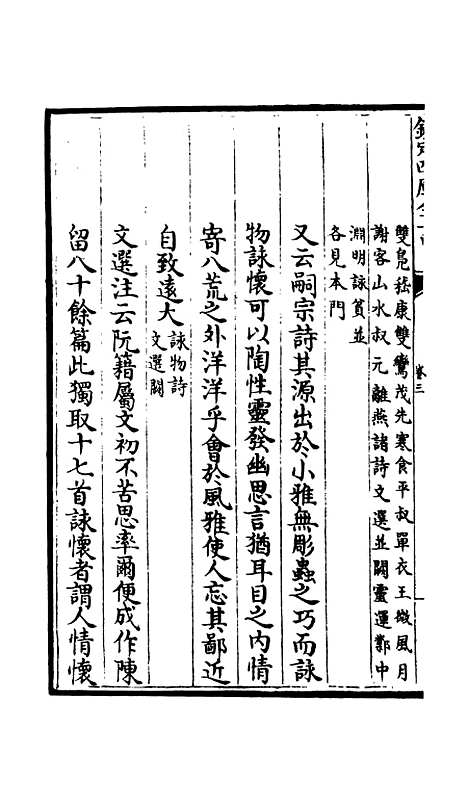 欽定四庫全書
卷三
雙鳧嵇康雙鸞茂先寒食平叔單衣王微風月
謝客山水叔元離燕諸詩文選並闕靈運鄴中
淵明詠貧並
各見本門
又云嗣宗詩其源出於小雅無彫蟲之巧而詠
物詠懷可以陶性靈發幽思言猶耳目之内情
寄八荒之外洋洋乎會於風雅使人忘其鄙近
自致遠大詠物詩
文選闕
文選注云阮籍屬文初不苦思率爾便成作陳
留八十餘篇此獨取十七首詠懷者謂人情懷